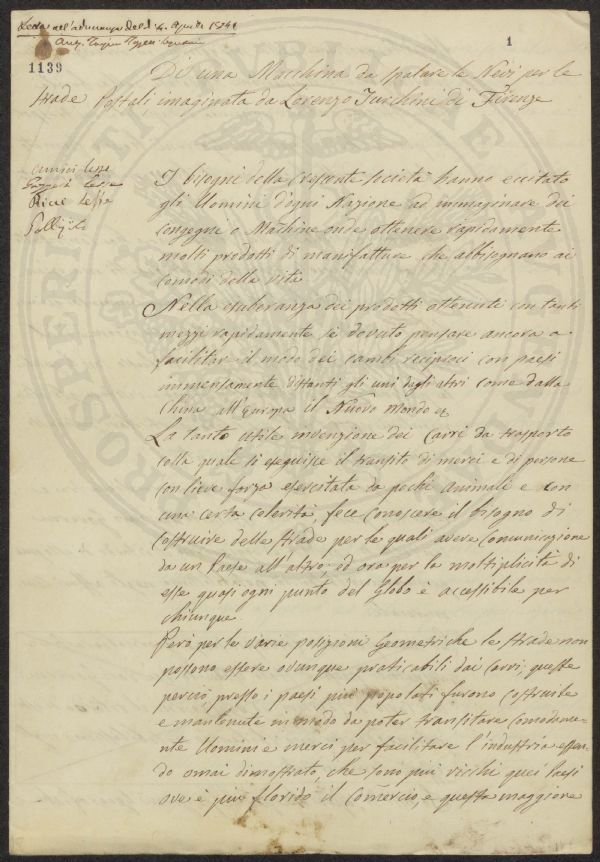 Letta nell'adunanza del dì 4. Aprile 1841
1
1139
Di una Macchina da spalare le Nevi per le
strade Postali, imaginata da Lorenzo Turchini di Firenze
I bisogni della Crescente società hanno eccitato
gli Uomini d'ogni Nazione ad immaginare dei
congegni o Machine onde ottenere rapidamente
molti prodotti di manifatture che abbisognano ai
comodi della vita
Nella esuberanza dei prodotti ottenuti con tanti
mezzi rapidamente si è dovuto pensare ancora a
facilitare il modo dei cambi reciproci con paesi
immensamente distanti gli uni dagli altri come dalla
China all'Europa il Nuovo Mondo &c
La tanto utile invenzione dei Carri da trasporto
colla quale si eseguisce il transito di merci e di persone
con lieve forza esercitata da pochi animali e con
una certa celerità, fece conoscere il bisogno di
costruire delle strade per le quali avere Comunicazione
da un Paese all'altro; ed ora per la moltiplicità di
esse quasi ogni punto del Globo è accessibile per
chiunque
Però per le varie posizioni Geometriche le strade non
possono essere ovunque praticabili dai Carri; queste
perciò presso i paesi più popolati furono costruite
e mantenute in modo da poter transitare Comodame-
nte Uomini e merci per facilitare l'industria essen-
do omai dimostrato, che sono più ricchi quei Paesi
ove è più florido il Comercio, e questa maggiore